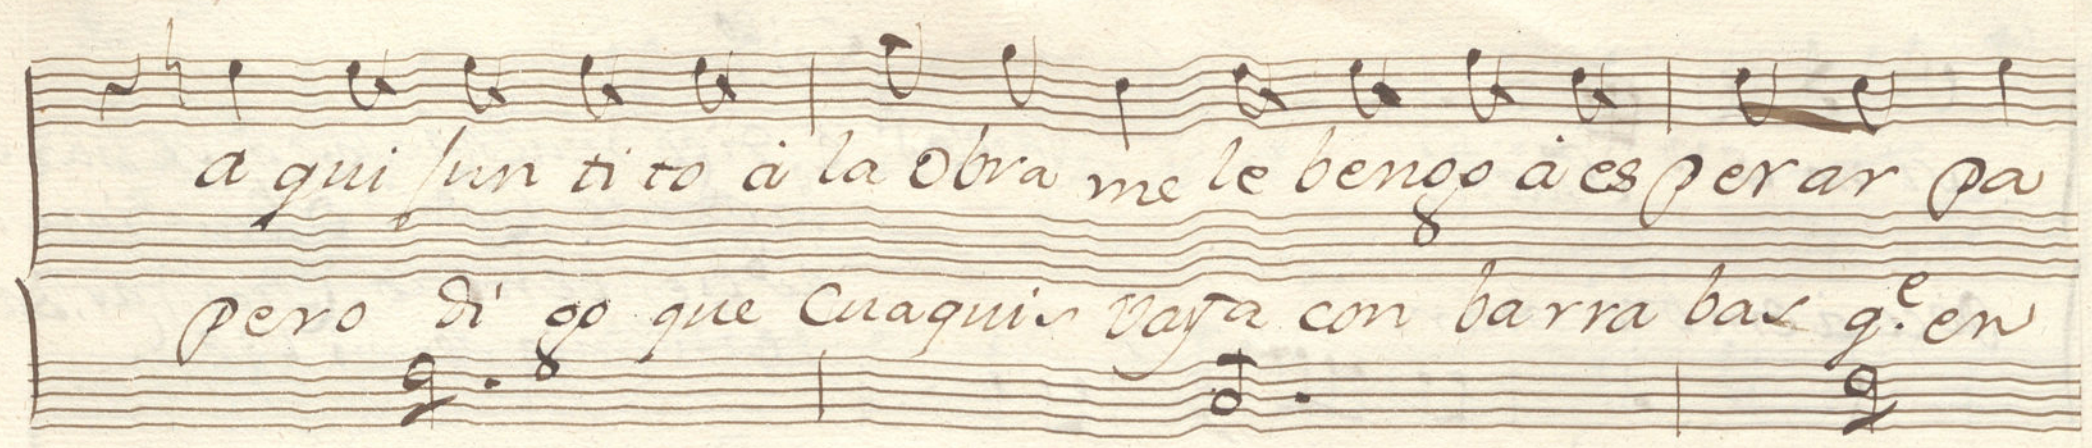 a qui jun ti to à la obra me le bengo à es perar pa
pero di go que Cuaquis vaya con barra bas q.e en